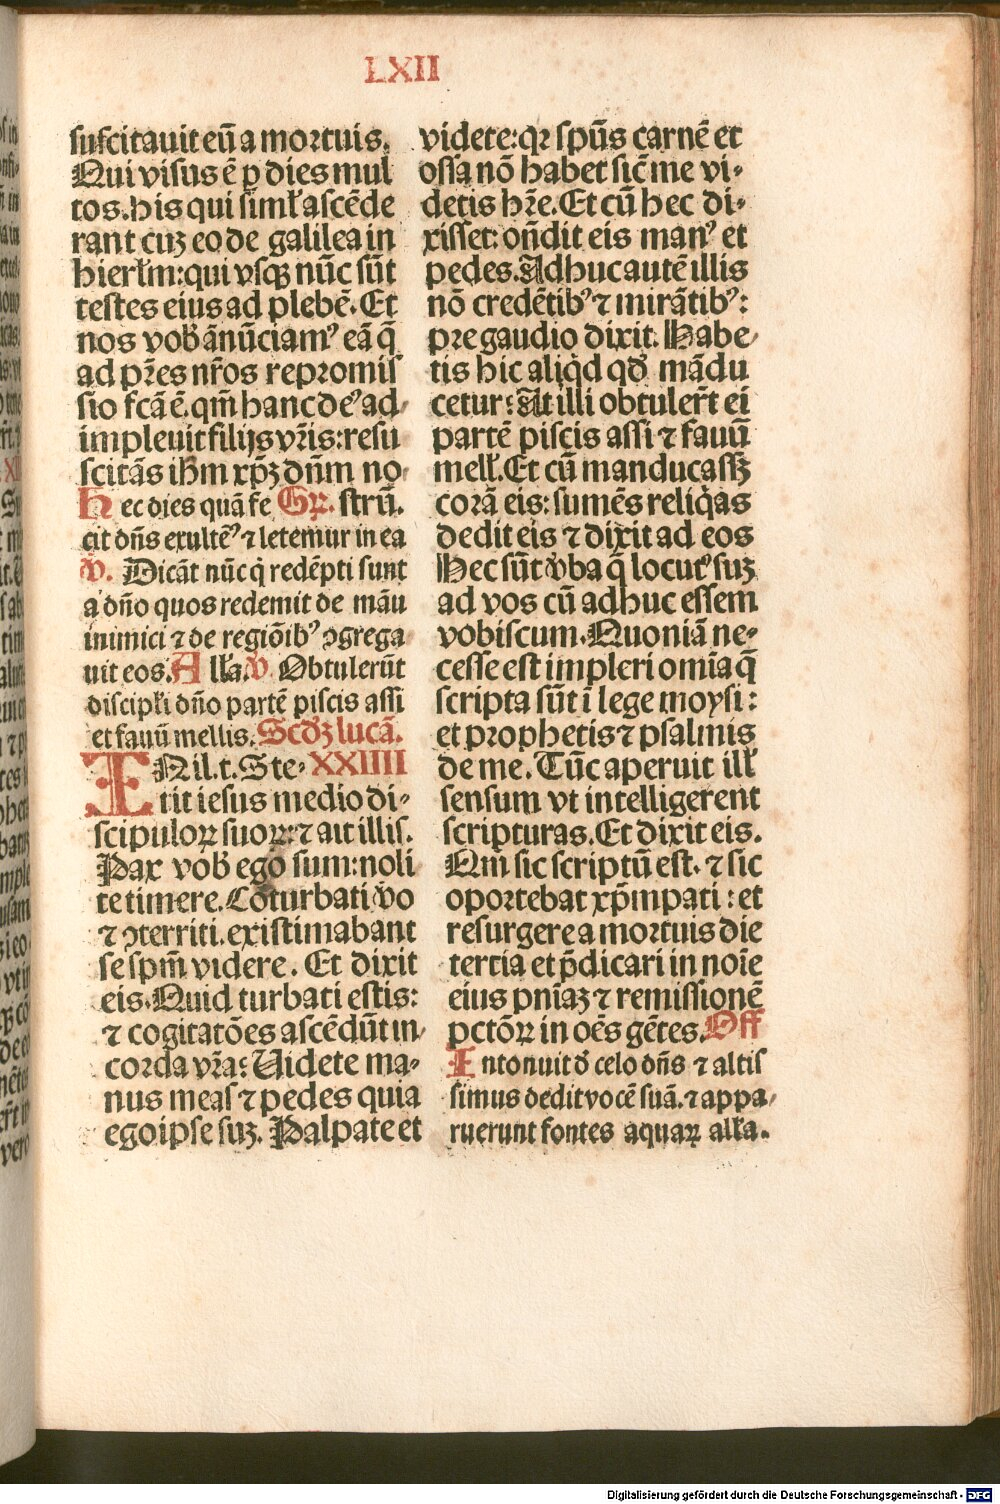 LXII
suscitauit eū a mortuis.
Qui visus ē ꝑ dies mul
tos. his qui siml̓ ascēde
rant cuꝫ eo de galilea in
hierl̓m: qui vsqꝫ nūc sūt
testes eius ad plebē. Et
nos vob̓ ānūciamꝰ eā q̄
ad pr̄es nr̄os repromis
sio fcā ē. qm̄ hanc deꝰ ad
impleuit filijs vr̄is: resu
scitās ihm̄ xpꝫ dn̄m no
Hec dies quā fe Gꝶ. strū.
cit dn̄s exultēꝰ ⁊ letemur in ea
V. Dicāt nūc q̇ redēpti sunt
a dn̄o quos redemit de māu
inimici ⁊ de regiōibꝰ ꝯgrega
uit eos. All̓a. V. Obtulerūt
discipl̓i dn̄o partē piscis assi
et fauū mellis. Scd̓ꝫ lucā.
IN il. t. Ste- XXIIII
tit iesus medio di-
scipuloꝝ suoꝝ: ⁊ ait illis.
Pax vob̓ ego sum: noli
te timere. Cōturbati v̓o
⁊ ꝯterriti. existimabant
se spm̄ videre. Et dixit
eis. Quid turbati estis:
⁊ cogitatōes ascēdūt in
corda vr̄a: Uidete ma-
nus meas ⁊ pedes quia
ego ipse suꝫ. Palpate et
videte: qꝛ spūs carnē et
ossa nō habet sic̄ me vi-
detis hr̄e. Et cū hec di-
xisset: on̄dit eis manꝰ et
pedes. Adhuc autē illis
nō credētibꝰ ⁊ mirātibꝰ:
pre gaudio dixit. Habe-
tis hic aliq̇d qd̓ mādu
cetur: At illi obtuler̄t ei
partē piscis assi ⁊ fauū
mell̓. Et cū manducassꝫ
corā eis: sumēs reliq̇as
dedit eis ⁊ dixit ad eos
Hec sūt v̓ba q̄ locutꝰ suꝫ
ad vos cū adhuc essem
vobiscum. Quoniā ne-
cesse est impleri om̄ia q̄
scripta sūt ī lege moysi:
et prophetis ⁊ psalmis
de me. Tūc aperuit ill̓
sensum vt intelligerent
scripturas. Et dixit eis.
Qm̄ sic scriptū est. ⁊ sic
oportebat xp̄m pati: et
resurgere a mortuis die
tercia et p̄dicari in noīe
eius pn̄iaꝫ ⁊ remissionē
pctōꝝ in oēs gētes. Off
Intonuit d̓ celo dn̄s ⁊ altis
simus dedit vocē suā. ⁊ appa-
ruerunt fontes aquaꝝ all̓a.
Digitalisierung gefördert durch die Deutsche Forschungsgemeinschaft - DFG